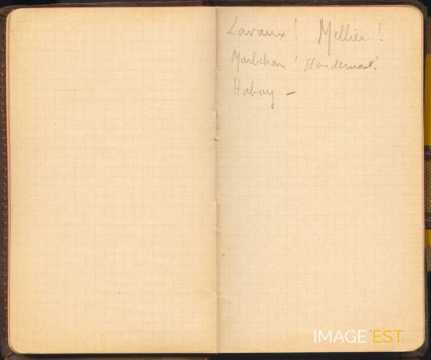 Lavaux! Mellier!
Marbehan! Houdemont!
Habay –
IMAGE'EST